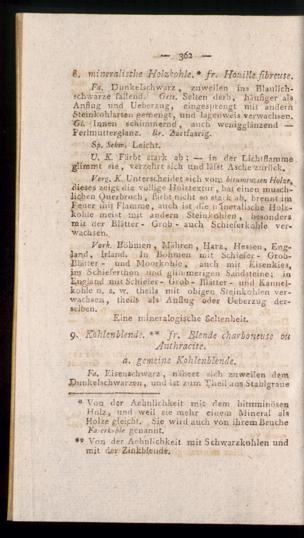 — 362 —
8. mineralische Holzkohle. * fr. Houille fibreuse.
Fa. Dunkelschwarz, zuweilen ins Blaulich-
schwarze fallend. Gest. Selten derb, häufiger als
Anflug und Ueberzug, eingesprengt mit andern
Steinkohlarten gemengt, und lagenweis verwachsen.
Gl. Innen schimmernd, auch wenigglänzend —
Perlmutterglanz. Br. Zartfasrig.
Sp. Schw. Leicht.
U. K. Färbt stark ab; — in der Lichtflamme
glimmt sie, verzehrt sich und läst Asche zurück.
Verg. K. Unterscheidet sich vom bituminosen Holze,
dieses zeigt die völlige Holztextur, hat einen musch-
lichen Querbruch, färbt nicht so stark ab, brennt im
Feuer mit Flamme, auch ist die mineralische Holz-
kohle meist mit andern Steinkohlen, besonders
mit der Blätter- Grob- auch Schieferkohle ver-
wachsen.
Vork. Böhmen, Mähren, Harz, Hessen, Eng-
land, Irland. In Böhmen mit Schiefer- Grob-
Blätter- und Moorkohle, auch mit Eisenkies,
im Schieferthon und glimmerigen Sandsteine; in
England mit Schiefer- Grob- Blätter- und Kannel-
kohle u. s. w. theils mit obigen Steinkohlen ver-
wachsen, theils als Anflug oder Ueberzug der-
selben.
Eine mineralogische Seltenheit.
9. Kohlenblende. ** fr. Blende charboneuse ou
Anthracite.
a. gemeine Kohlenblende.
Fa. Eisenschwarz, nähert sich zuweilen dem
Dunkelschwarzen, und ist zum Theil aus Stahlgraue
* Von der Aehnlichkeit mit dem bituminösen
Holz, und weil sie mehr einem Mineral als
Holze gleicht. Sie wird auch von ihrem Bruche
Faserkohle genannt.
** Von der Aehnlichkeit mit Schwarzkohlen und
mit der Zinkblende.